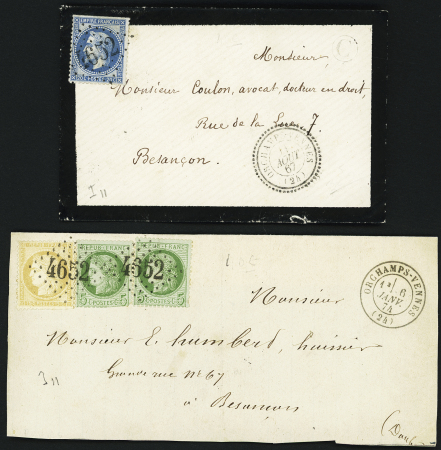 EMPIRE FRANÇAIS
4652
Monsieur
C
Monsieur Coulon, avocat, docteur en droit,
Rue de la 7
Besançon.
ORCHAMPS-VENNES
AOUT
67
(24)
I 11
REPUB. FRANC.
REPUB. FRANC.
4652
4652
POSTES
POSTES
ORCHAMPS-VENNES
6
JANV.
74
(24)
Monsieur
Monsieur E. Humbert, huissier
Grande rue No 67
à Besançon
(Doubs